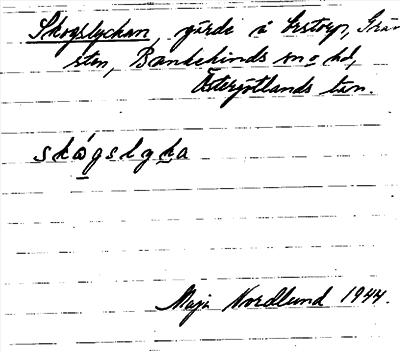 Skogslyckan, gärde i Orstorp, Grän
sten, Bankekinds sn o hd,
Östergötlands län.
skógslyka
Maja Nordlund 1944.